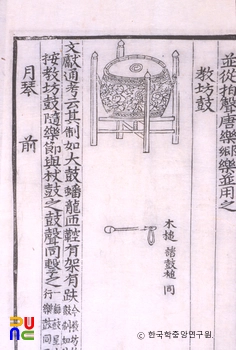 並從拍聲唐樂鄕樂並用之
教坊鼓
木槌 諸鼓槌同
文獻通考云其制如大鼓蟠龍匝鞚有架有趺
按教坊鼓隨樂節與杖鼓之鼓聲同擊之
月琴 前
© 한국학중앙연구원